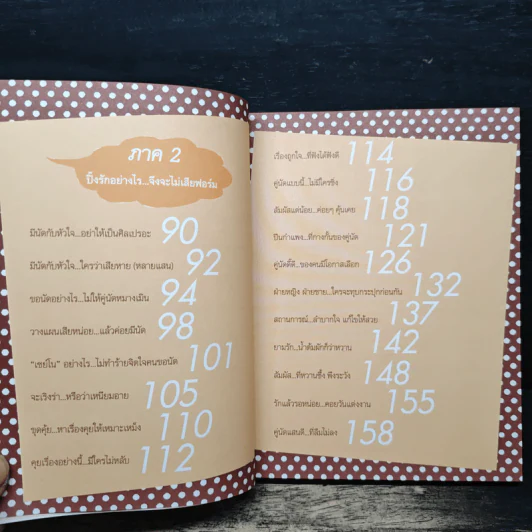 ภาค 2
ปิ๊งรักอย่างไร...จึงจะไม่เสียฟอร์ม
มีนัดกับหัวใจ...อย่าให้เป็นศิลเปรอะ 90
มีนัดกับหัวใจ...ใครว่าเสียหาย (หลายแสน) 92
ขอนัดอย่างไร...ไม่ให้คู่นัดหมางเมิน 94
วางแผนเสียหน่อย...แล้วค่อยมีนัด 98
"เซย์โน" อย่างไร...ไม่ทำร้ายจิตใจคนขอนัด 101
จะเริงร่า...หรือว่าเหนียมอาย 105
ชุดคุ้ย...หาเรื่องคุยให้เหมาะเหม็ง 110
คุยเรื่องอย่างนี้...มีใครไม่หลับ 112
เรื่องถูกใจ...ที่ฟังได้ฟังดี 114
คู่นัดแบบนี้...ไม่มีใครชิง 116
สัมผัสแต่น้อย...ค่อยๆ คุ้นเคย 118
ปีนกำแพง...ที่กางกั้นของคู่นัด 121
คู่นัดดี๊ดี...ของคนมีโอกาสเลือก 126
ฝ่ายหญิง ฝ่ายชาย...ใครจะทุบกระปุกก่อนกัน 132
สถานการณ์...ลำบากใจ แก้ไขให้สวย 137
ยามรัก...น้ำต้มผักก็ว่าหวาน 142
สัมผัส...ที่หวานซึ้ง พึงระวัง 148
รักแล้วรอหน่อย...คอยวันแต่งงาน 155
คู่นัดแสนดี...ที่ลืมไม่ลง 158